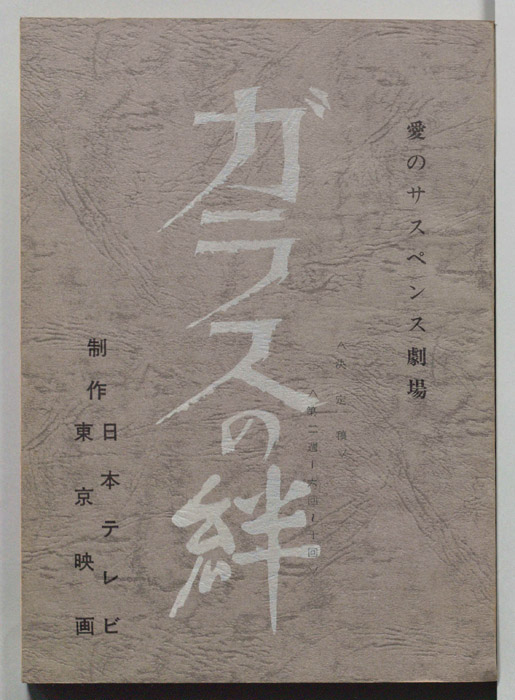 愛のサスペンス劇場
〈決定稿〉
〈第二週 六回〜十回
ガラスの絆
制作
日本テレビ
東京映画